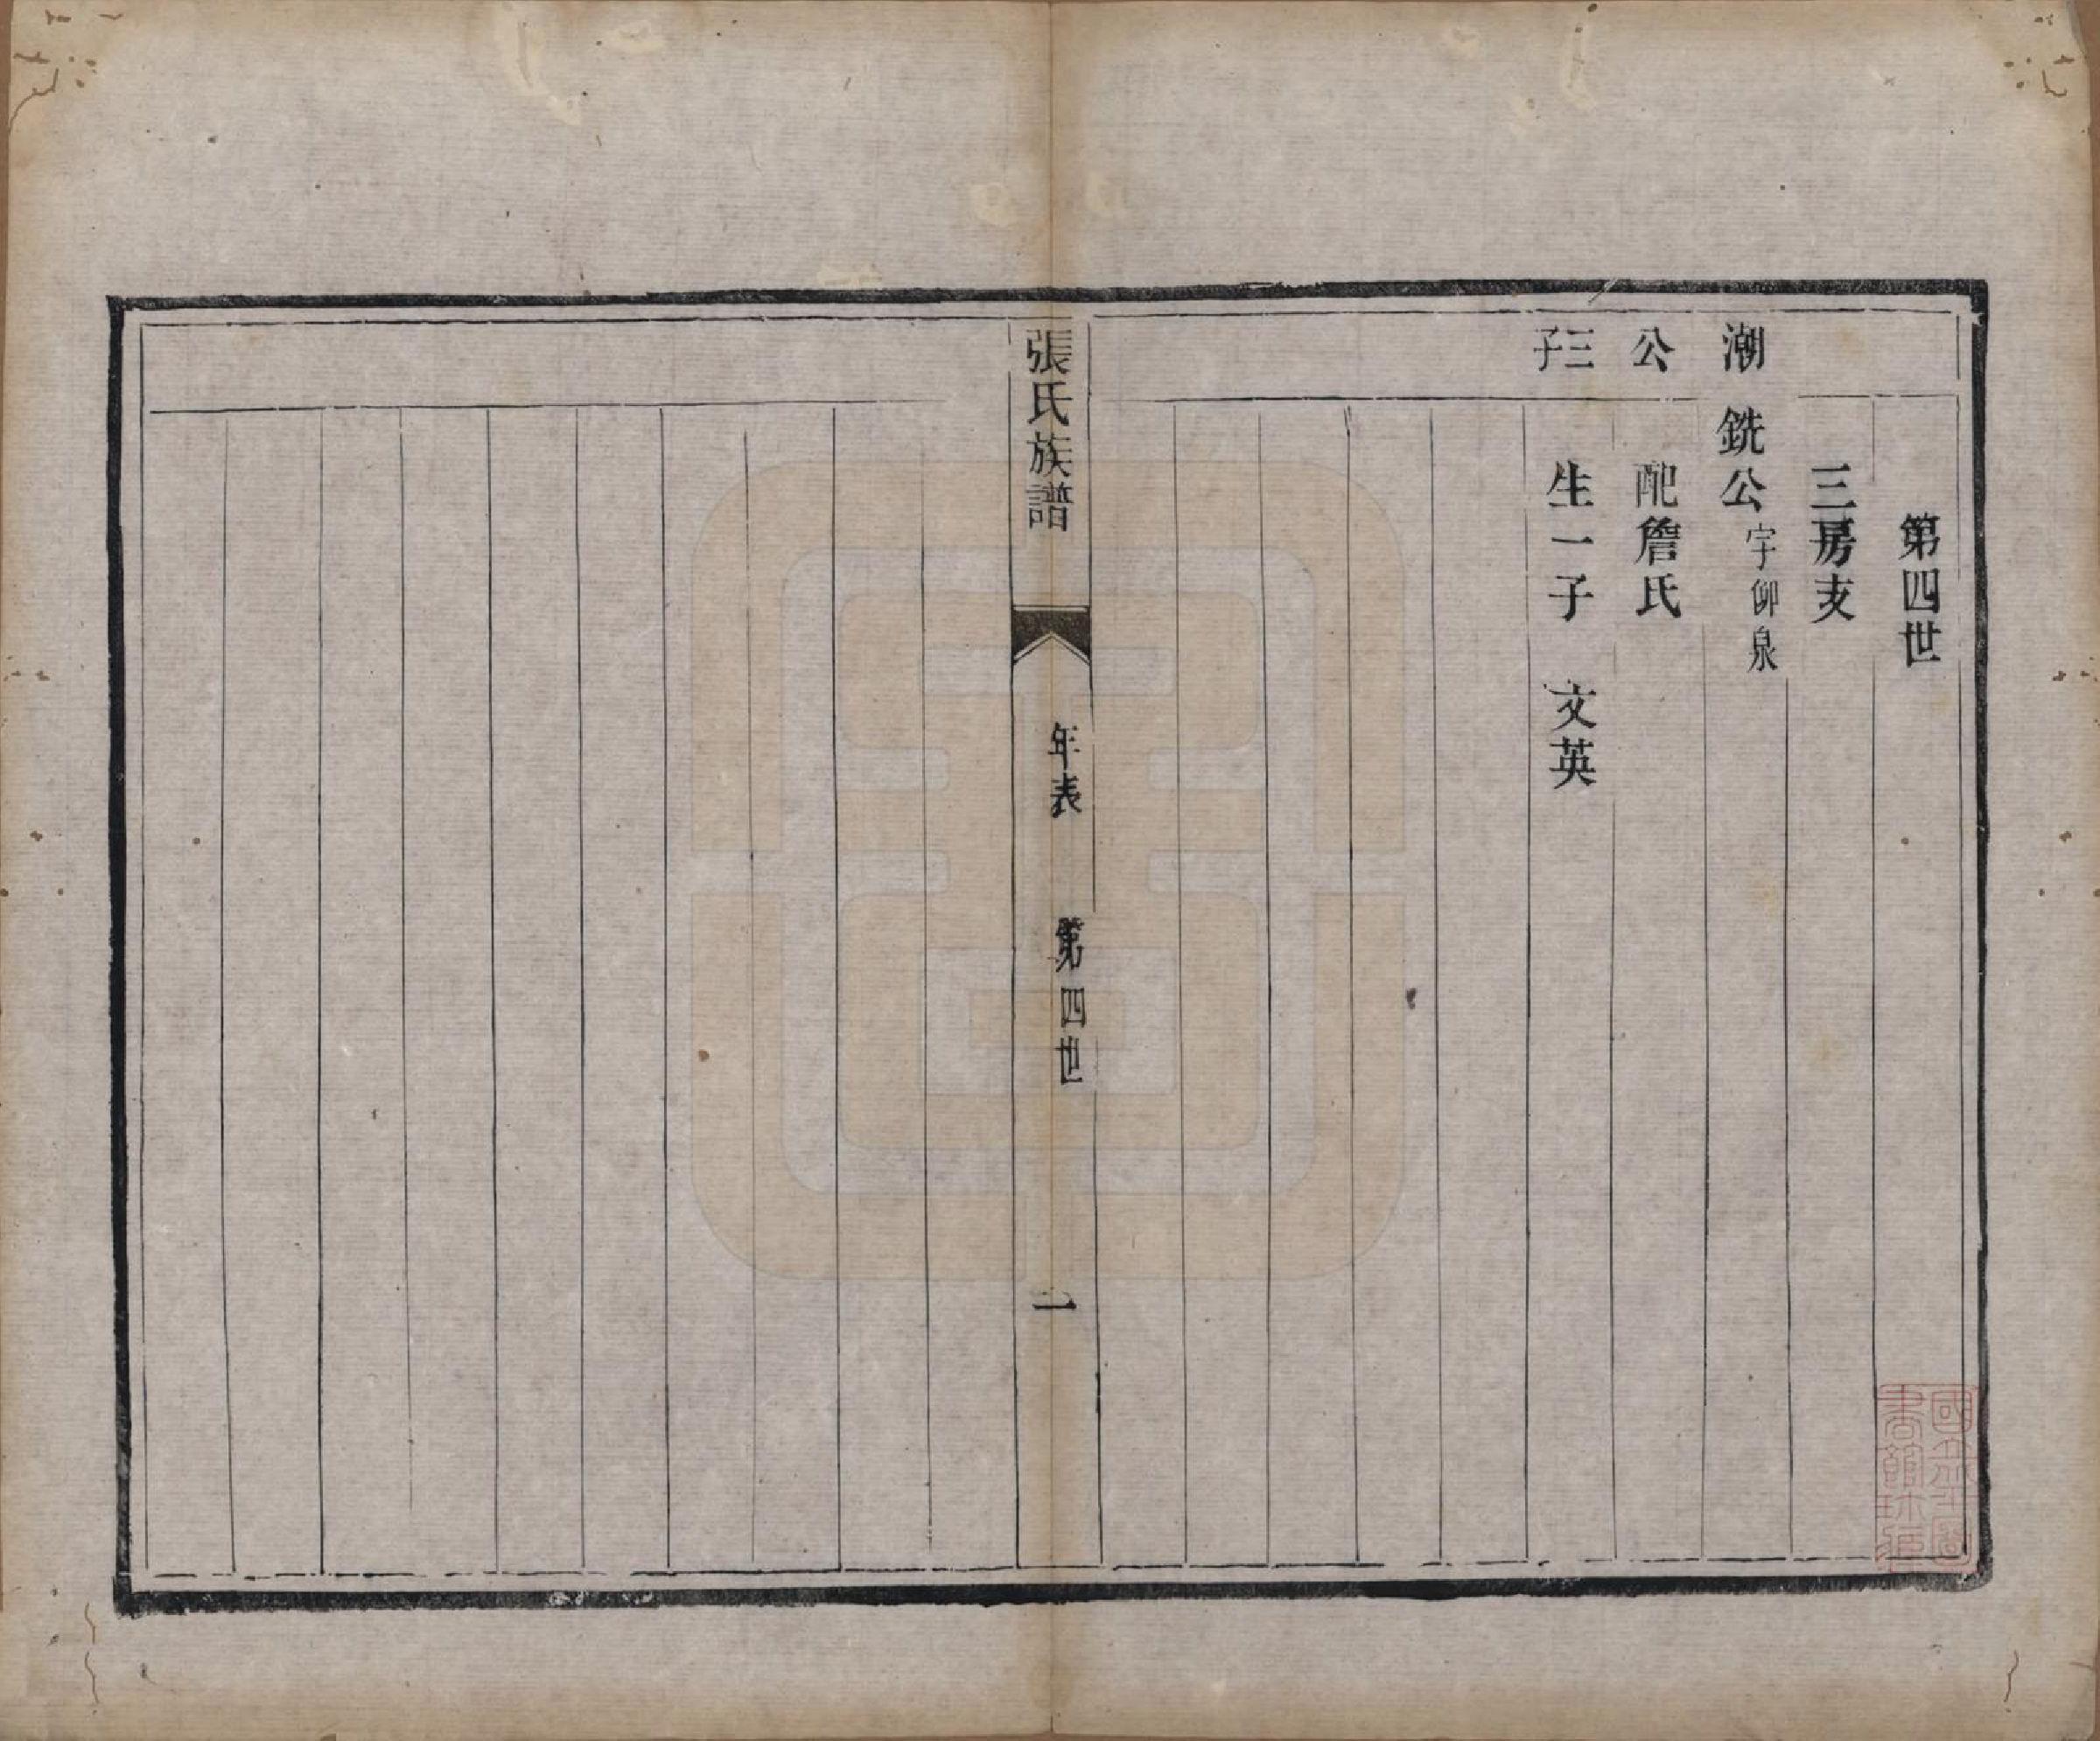 第四世
三房支
潮 銑公 字仰泉
公 配詹氏
三子 生一子 文英
張氏族譜 年表 第四世 一
國立北平圖書館珍藏